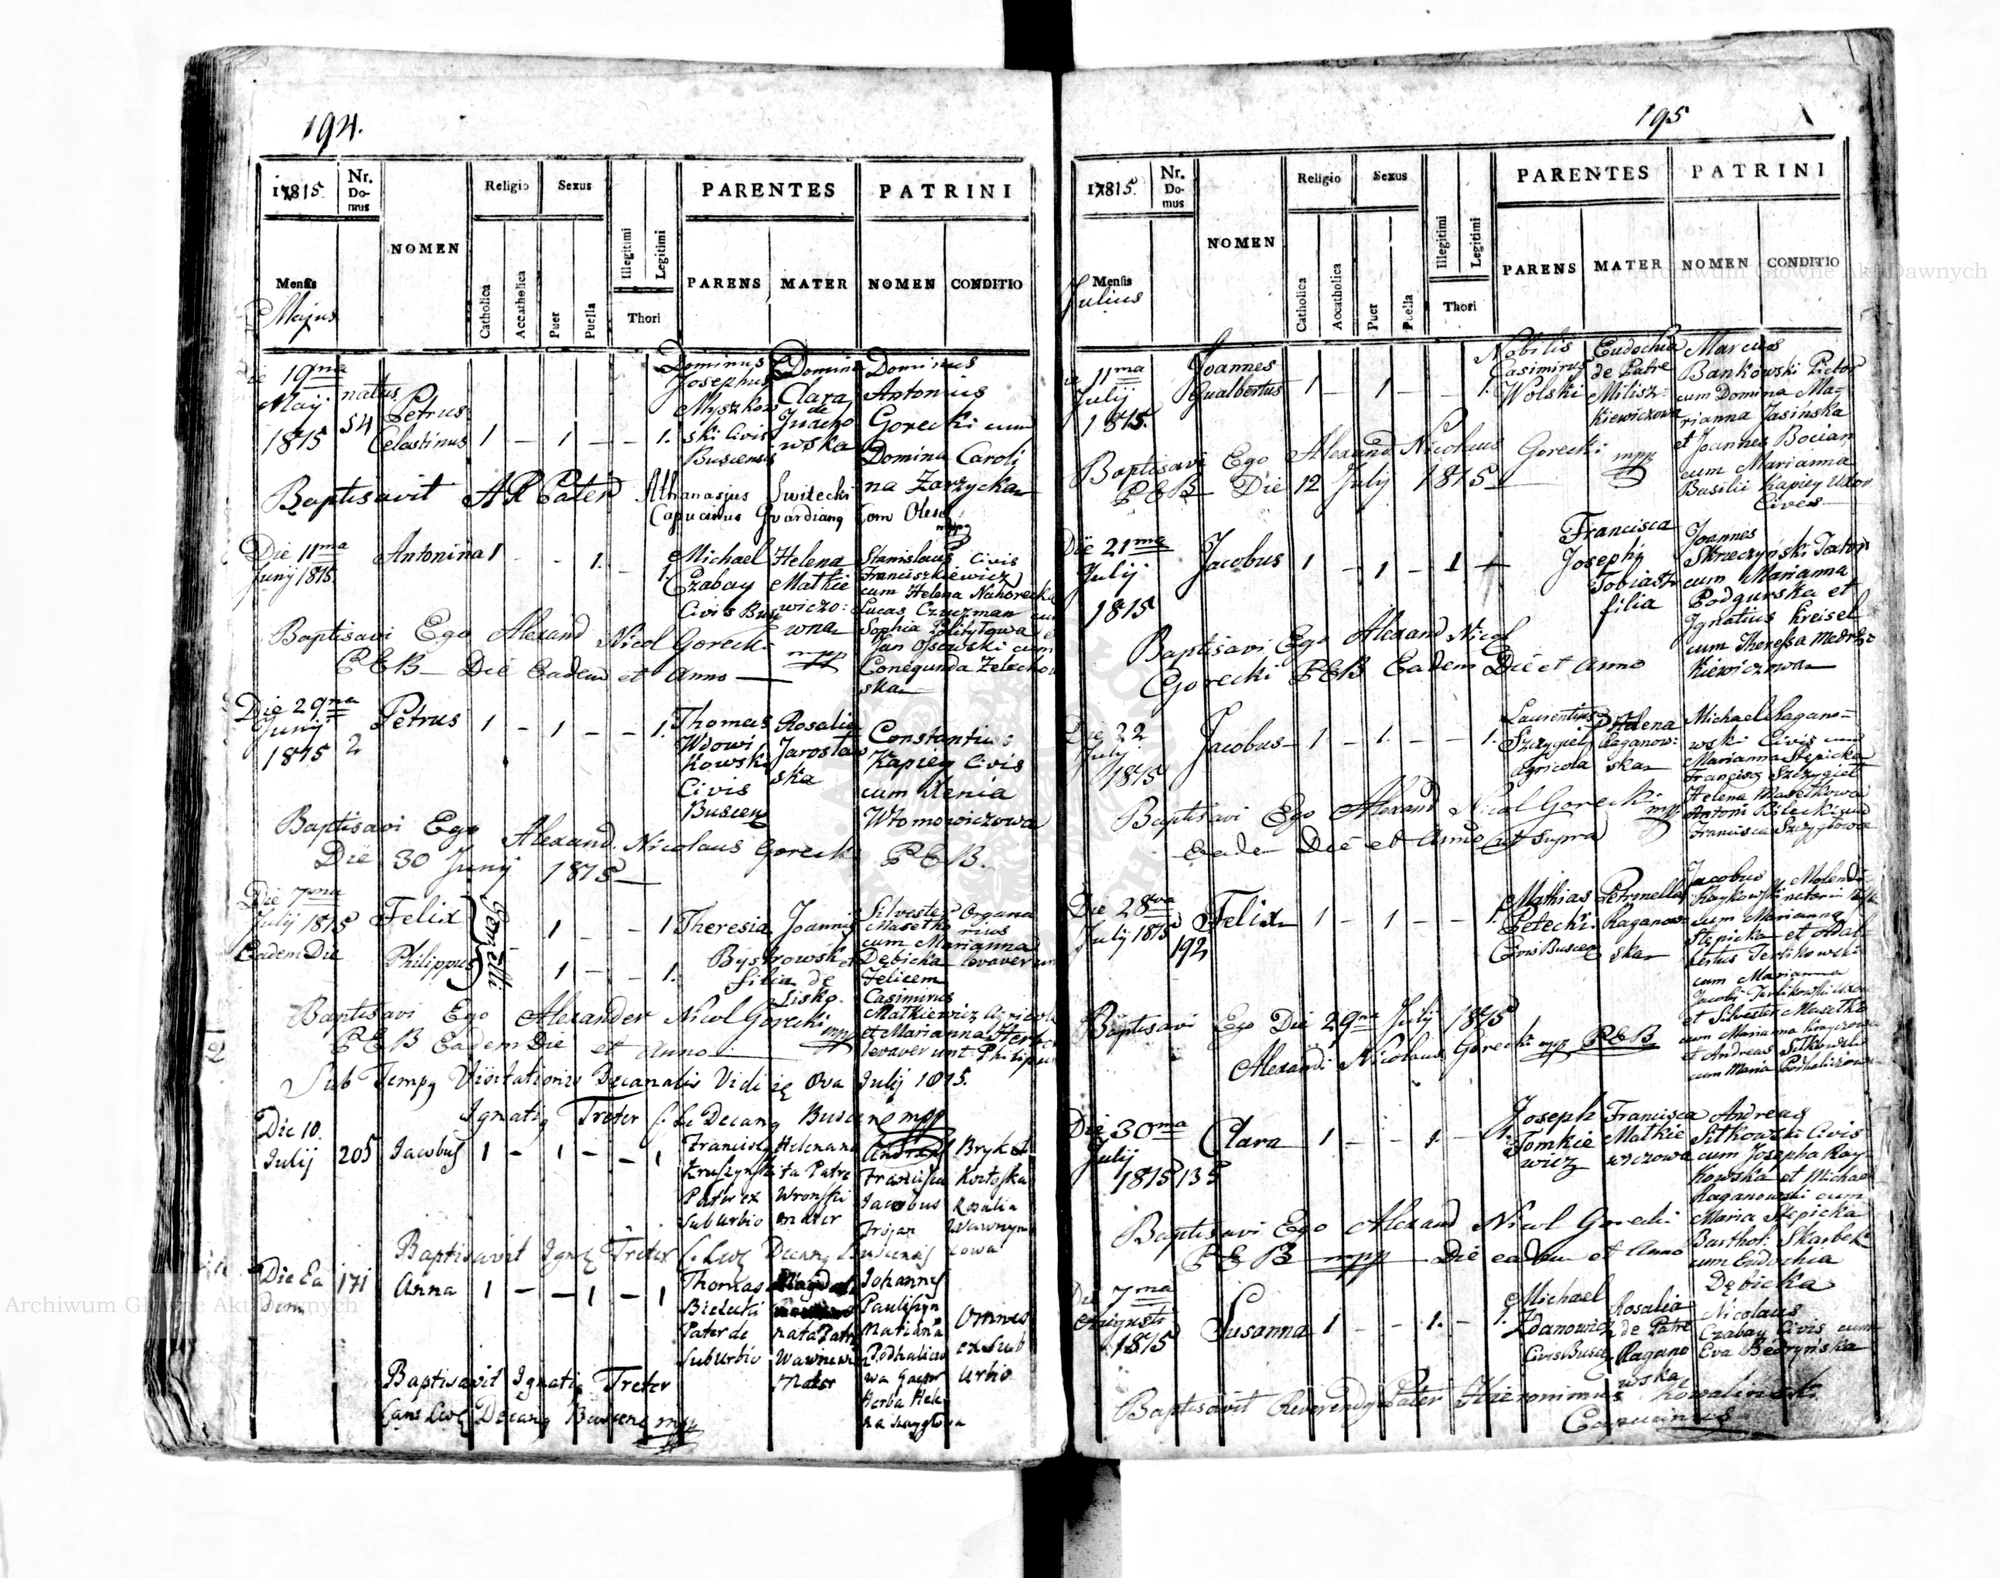 194.
1815.
Nr. Do- mus
NOMEN
Religio
Sexus
PARENTES
PATRINI
Mensis
Majus
Catholica
Accatholica
Puer
Puella
Illegitimi
Legitimi
Thori
PARENS
MATER
NOMEN
CONDITIO
Die 19na Maij 1815
natus
54
Petrus
Celestinus
1 – 1 – – 1.
Dominus
Josephus
Myszkow
ski Civis
Buscensis
Domina
Clara
de
wska
Dominus
Antonius
Gorecki cum
Domina Caroli
na Zarzycka
Baptisavit AR Pater Athanasius Switecki
Capucinus Guardiang Com Olesc
Die 11ma
Junij 1815.
Antonina
1 – – 1. – 1.
Michael
Czabay
Civis Bus
Helena
Matkie
wiczo:
wna
Stanislaus Civis
Franciszkiewicz
cum Helena Nahorecka
Lucas Czuzman cum
Sophia
Jan Ossowski cum
Conegunda Zelechow
ska
Baptisavi Ego Alexand Nicol Gorecki mpp
PEB Die Eadem et Anno
Die 29na
Junij
1815
2
Petrus
1 – 1 – – 1.
Thomas
Wdowi
kowski
Civis
Buscens
Rosalia
Jaroslaw
ska
Constantius
Kapiey Civis
cum Xenia
Wlomowiczowa
Baptisavi Ego Alexand. Nicolaus Gorecki PEB.
Die 30 Junij 1815
Die 7ma
Julij 1815
Eadem Die
Felix
Philippus
Gemelli
1 – – 1
1 – – 1.
Theresia Joannis
Bystrowski
filia de
Lisko.
Silvester Organa
Masetko rius
cum Marianna
Dębicka levaverunt
Felicem
Casimirus
Matkiewicz Agricola
et Marianna
levaverunt Philippum
Baptisavi Ego Alexander Nicol Gorecki mpp
PEB Eadem Die et Anno
Sub Tempg Visitationis Decanalis Vidi Julij 1815.
Ignatig Treter Decang Buscens mpp
Die 10.
Julij
205
Jacobus
1 – 1 – – 1
Franciscg
Kruszynski
Pater ex
Suburbio
Helena na
ta Patre
Wronski
mater
Andreas Bryket
Francisca Kortoska
Jacobus Rosalia
Trojan Wawryn
iowa
Baptisavit Ignatz Treter Decang Buscensis
Die Ea
dem
171
Anna
1 – – 1 – 1
Thomas
Bielecki
Pater de
Suburbio
nata Patre
Mater
Johannes
Paulisyn
Marianna
Podhalicow
wa Gaspar
Herba Hele
na
Omnes
ex Sub
urbio
Baptisavit Ignatig Treter
Decang Buscens mpp
195
1815.
Nr. Do- mus
NOMEN
Religio
Sexus
PARENTES
PATRINI
Mensis
Julius
Catholica
Accatholica
Puer
Puella
Illegitimi
Legitimi
Thori
PARENS
MATER
NOMEN
CONDITIO
11ma
Julij
1815.
Joannes
Gualbertus
1 – 1 – – 1.
Nobilis
Casimirus
Wolski
Eudochia
de Patre
Milisz
kiewiczowa
Marcus
Bankowski Pictor
cum Domina Ma-
rianna Jasinska
et Joannes Bocian
cum Marianna
Basilii Kapiey Uxor
Cives
Baptisavi Ego Alexand Nicolaus Gorecki mpp
PEB Die 12 Julij 1815
Die 21ma
Julij
1815
Jacobus
1 – 1 – 1
Francisca
Josephi
Tobiasz
filia
Joannes
Skreczyński Textor
cum Marianna
Podgurska et
Ignatius Kreisel
cum Theressa
kiewiczowa
Baptisavi Ego Alexand Nicol
Gorecki PEB Eadem Die et Anno
Die 22
Julij
1815
Jacobus
1 – 1. – – 1.
Laurentius
Szczygiel
Agricola
Helena
Raganow:
ska
Michael Ragano-
wski Civis cum
Marianna Stępicka
Francisg Szczygiel
Helena Masetkowa
Antoni Bilecki cum
Francisca Szczyglowa
Baptisavi Ego Alexand Nicol Gorecki mpp
Eadem Die et Anno ut Supra
Die 28va
Julij 1815
192
Felix
1 – 1 – – 1.
Mathias
Petecki
Civis Buscen
Petronella
Raganow
ska
Jacobus Molendi
Kaykowski
cum Marianna
Stępicka et Adal
bertus Terlikowski
cum Marianna
Jacobi Terlikowski Uxor
et Silvester Masetko
cum Marianna
et Andreas Sitkowski
cum Maria Podhaliczowa
Baptisavi Ego Die 29na Julij 1815
Alexand Nicolaus Gorecki mpp PEB
Die 30ma
Julij
1815
135
Clara
1 – – 1 – 1.
Joseph
Tomkie
wicz
Francisca
Matkie
wiczowa
Andreas
Sitkowski Civis
cum Josepha Kay-
kowska et Michael
Raganowski cum
Maria Stępicka
Barthol: Skarbek
cum Eudochia
Dębicka
Baptisavi Ego Alexand Nicol Gorecki
PEB mpp Die eadem et Anno
Die 7ma
Augusti
1815
Susanna
1 – – 1. – 1.
Michael
Zdanowicz
Civis Busc
Rosalia
de Patre
Ragano
wska
Nicolaus
Czabay Civis cum
Eva Bedryńska
Baptisavit Reverendg Pater Hieronimus Kowalinski
Capucinus
Archiwum Główne Akt Dawnych
Archiwum Główne Akt Dawnych